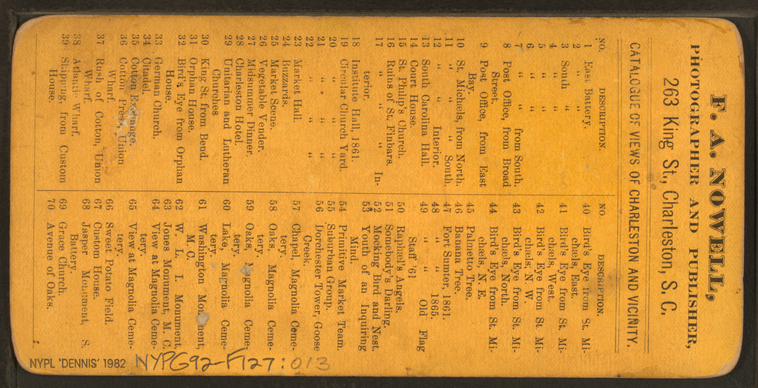 F. A. NOWELL,
PHOTOGRAPHER AND PUBLISHER,
263 King St., Charleston, S. C.
CATALOGUE OF VIEWS OF CHARLESTON AND VICINITY.
NO. DESCRIPTION.
1 East Battery.
2 " "
3 South "
4 " "
5 " "
6 " "
7 " " from South.
8 Post Office, from Broad
Street.
9 Post Office, from East
Bay.
10 St. Michaels, from North.
11 " " South.
12 " Interior.
13 South Carolina Hall.
14 Court House.
15 St. Philip's Church.
16 Ruins of St. Finbars.
17 " " " In-
terior.
18 Institute Hall, 1861.
19 Circular Church Yard.
20 " " "
21 " " "
22 " " "
23 Market Hall.
24 Buzzards.
25 Market Scene.
26 Vegetable Vender.
27 Midsummer Dinner.
28 Charleston Hotel.
29 Unitarian and Lutheran
Churches
30 King St. from Bend.
31 Orphan House.
32 Bird's Eye from Orphan
House.
33 German Church.
34 Citadel.
35 Cotton Exchange.
36 Cotton Press, Union
Wharf.
37 Rush of Cotton, Union
Wharf.
38 Atlantic Wharf.
39 Shipping, from Custom
House.
NO DESCRIPTION.
40 Bird's Eye from St. Mi-
chaels, East.
41 Bird's Eye from St. Mi-
chaels, West.
42 Bird's Eye from St. Mi-
chaels, N. W.
43 Bird's Eye from St. Mi-
chaels, North.
44 Bird's Eye from St. Mi-
chaels, N. E.
45 Palmetto Tree.
46 Banana Tree.
47 Fort Sumter, 1861.
48 " " 1865.
49 " " Old Flag
Staff '61
50 Raphael's Angels.
51 Somebody's Darling.
52 Mocking Bird and Nest.
53 Youth of an Inquiring
Mind.
54 Primitive Market Team.
55 Suburban Group.
56 Dorchester Tower, Goose
Creek.
57 Chapel, Magnolia Ceme-
tery.
58 Oaks, Magnolia Ceme-
tery.
59 Oaks, Magnolia Ceme-
tery.
60 Lake, Magnolia Ceme-
tery.
61 Washington Monument,
M. C.
62 W. L. I. Monument,
63 Jones Monument, M. C.
64 View at Magnolia Ceme-
tery.
65 View at Magnolia Ceme-
tery.
66 Sweet Potato Field.
67 Custom House.
68 Jasper Monument, S.
Battery.
69 Grace Church.
70 Avenue of Oaks.
NYPL 'DENNIS' 1982 NYPG92-F127:013